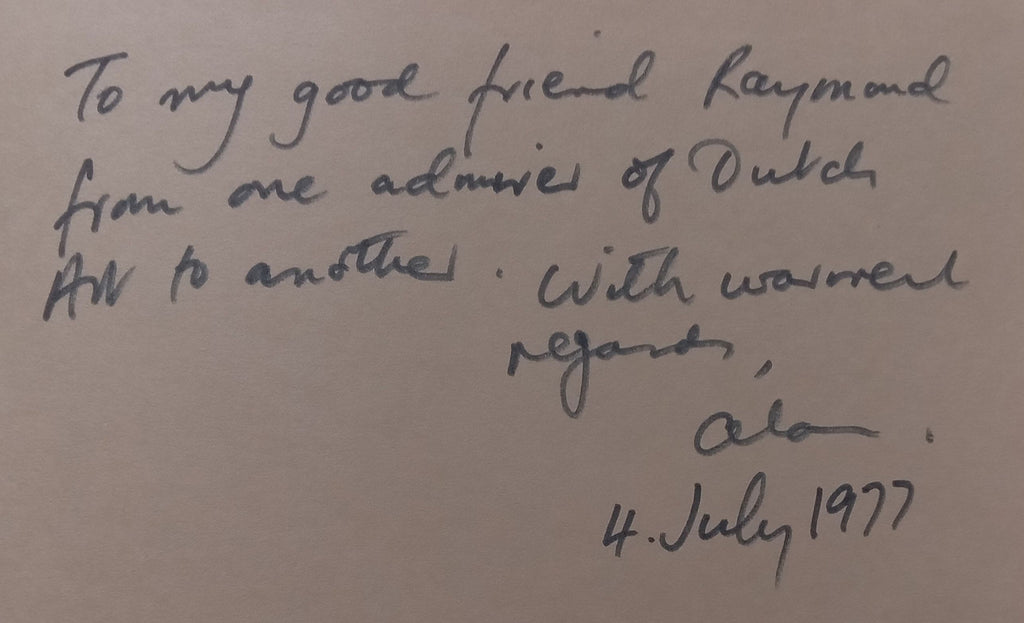 To my good friend Raymond
from one admirer of Dutch
Art to another. With warmest
regards,
Alan.
4. July 1977